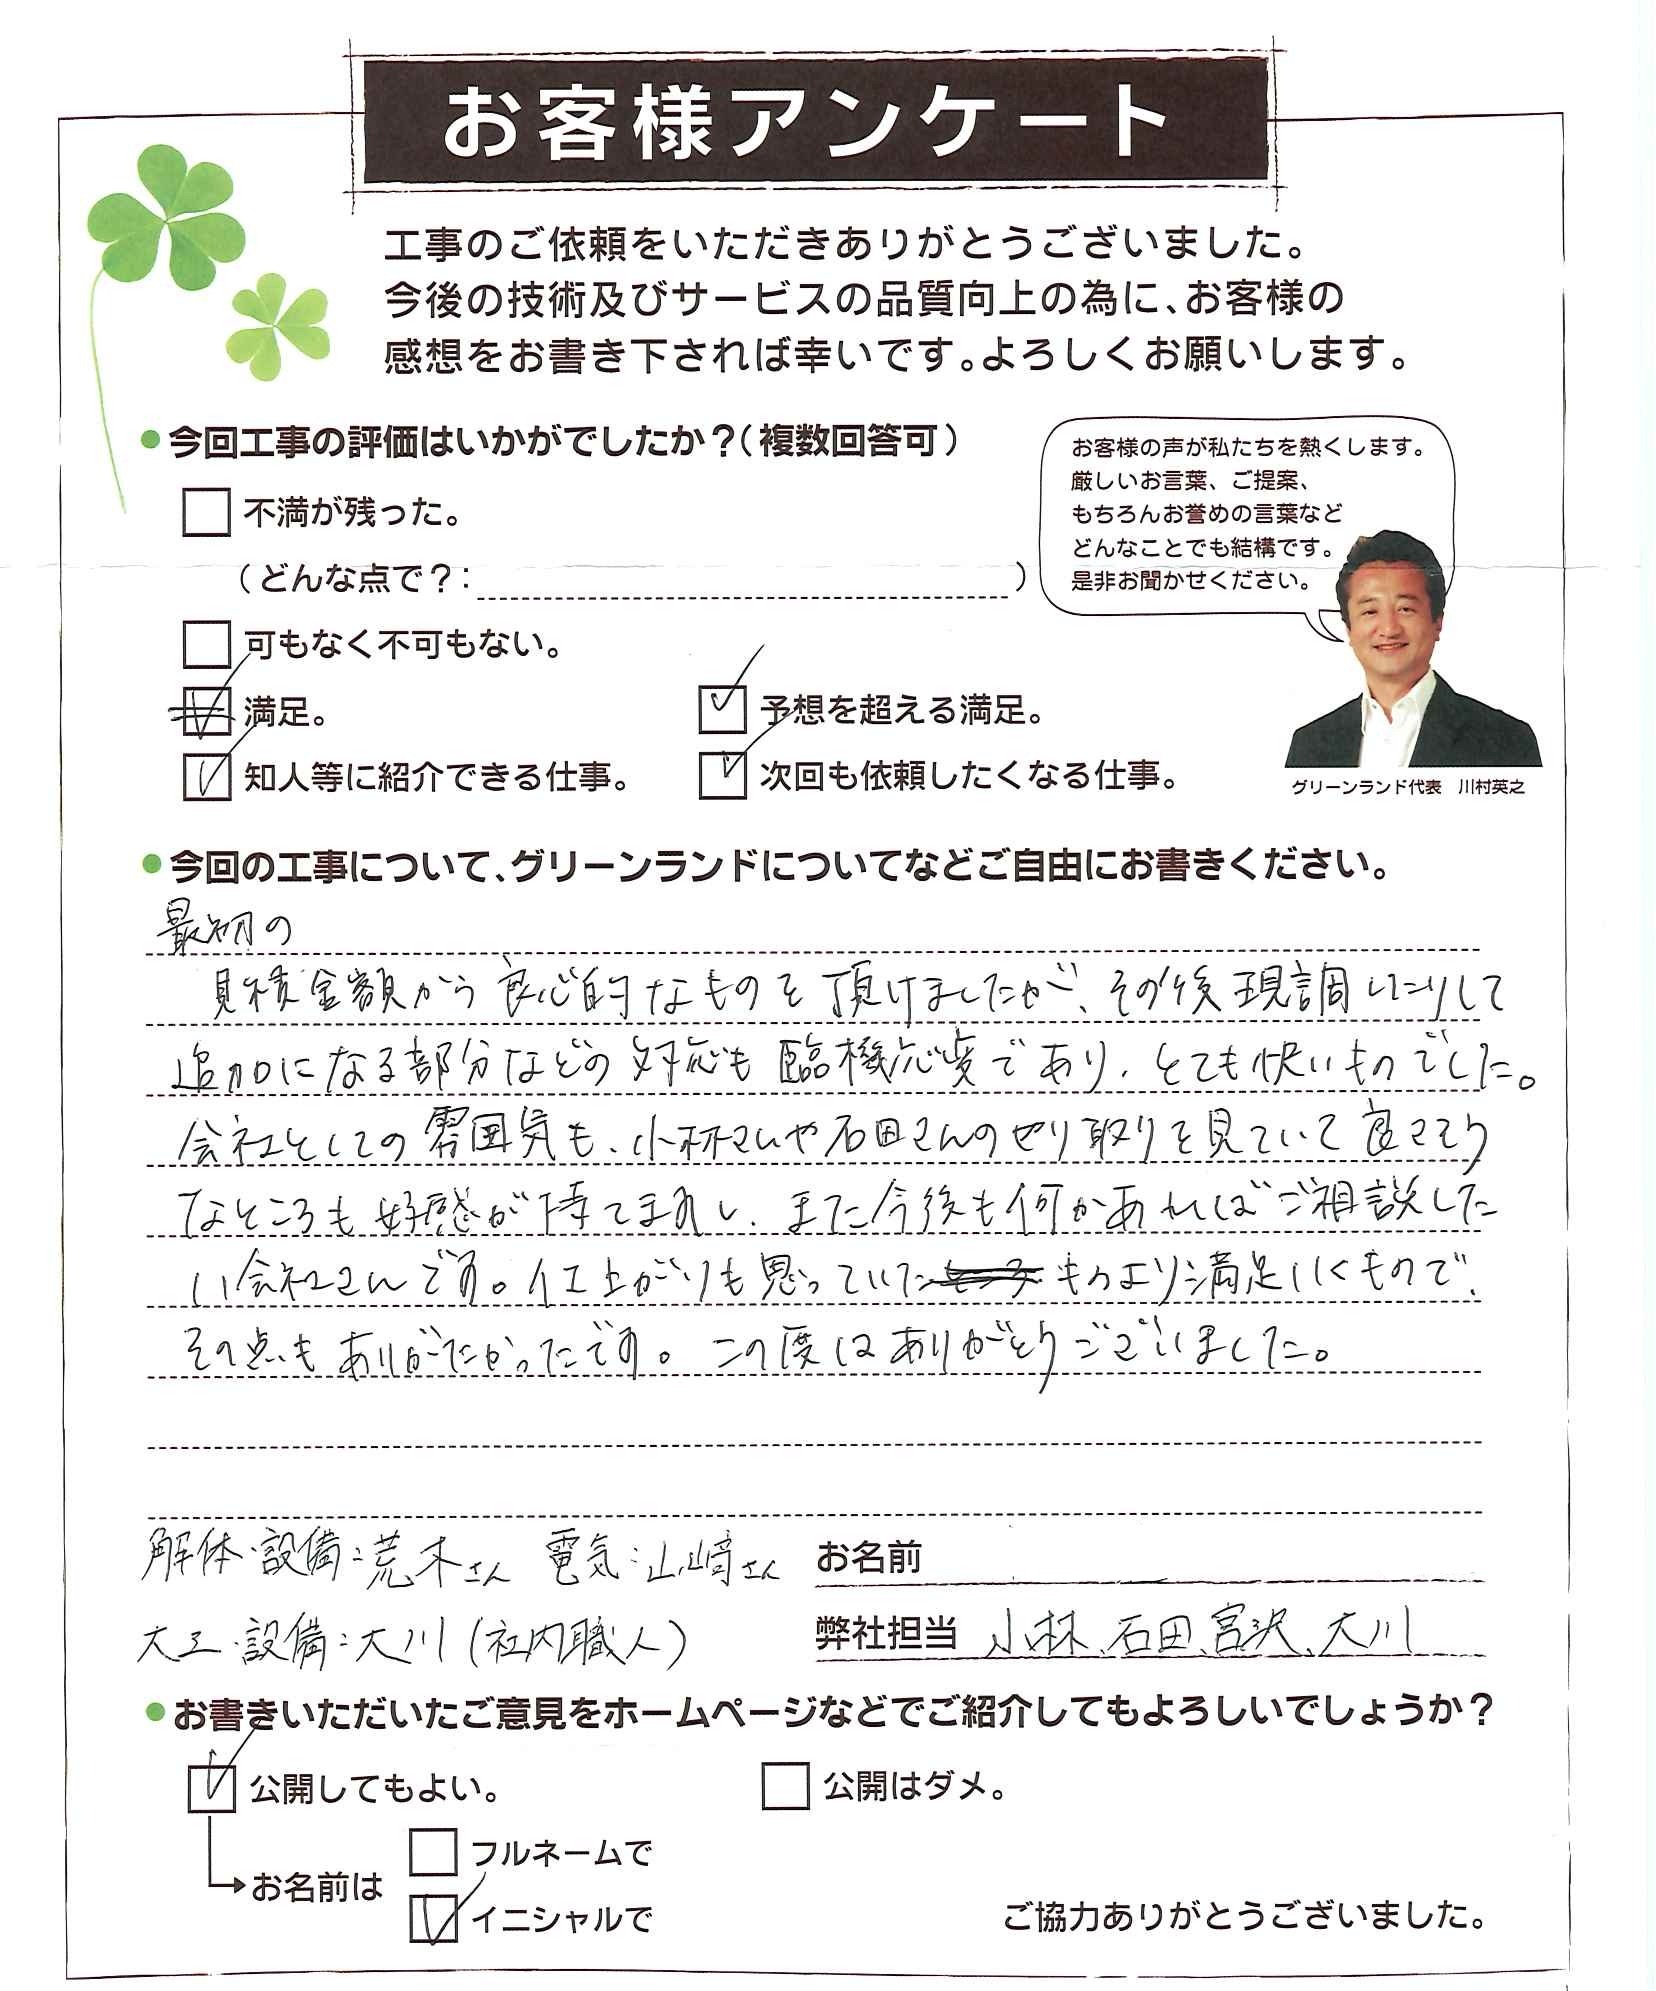 お客様アンケート
工事のご依頼をいただきありがとうございました。
今後の技術及びサービスの品質向上の為に、お客様の
感想をお書き下されば幸いです。よろしくお願いします。
今回工事の評価はいかがでしたか？（複数回答可）
不満が残った。
（どんな点で？：　）
可もなく不可もない。
満足。
予想を超える満足。
知人等に紹介できる仕事。
次回も依頼したくなる仕事。
お客様の声が私たちを熱くします。
厳しいお言葉、ご提案、
もちろんお誉めの言葉など
どんなことでも結構です。
是非お聞かせください。
グリーンランド代表　川村英之
今回の工事について、グリーンランドについてなどご自由にお書きください。
最初の
見積金額から良心的なものを頂けましたが、その後現調したりして
追加になる部分などの対応も臨機応変であり、とても快いものでした。
会社としての雰囲気も、小林さんや石田さんのやり取りを見ていて良さそう
なところも好感が持てますし、また今後も何かあればご相談した
い会社さんです。仕上がりも思っていたものより満足いくもので、
その点もありがたかったです。この度はありがとうございました。
解体・設備：荒木さん　電気：山﨑さん
大工・設備：大川（社内職人）
お名前
弊社担当　小林、石田、宮沢、大川
お書きいただいたご意見をホームページなどでご紹介してもよろしいでしょうか？
公開してもよい。
公開はダメ。
お名前は
フルネームで
イニシャルで
ご協力ありがとうございました。